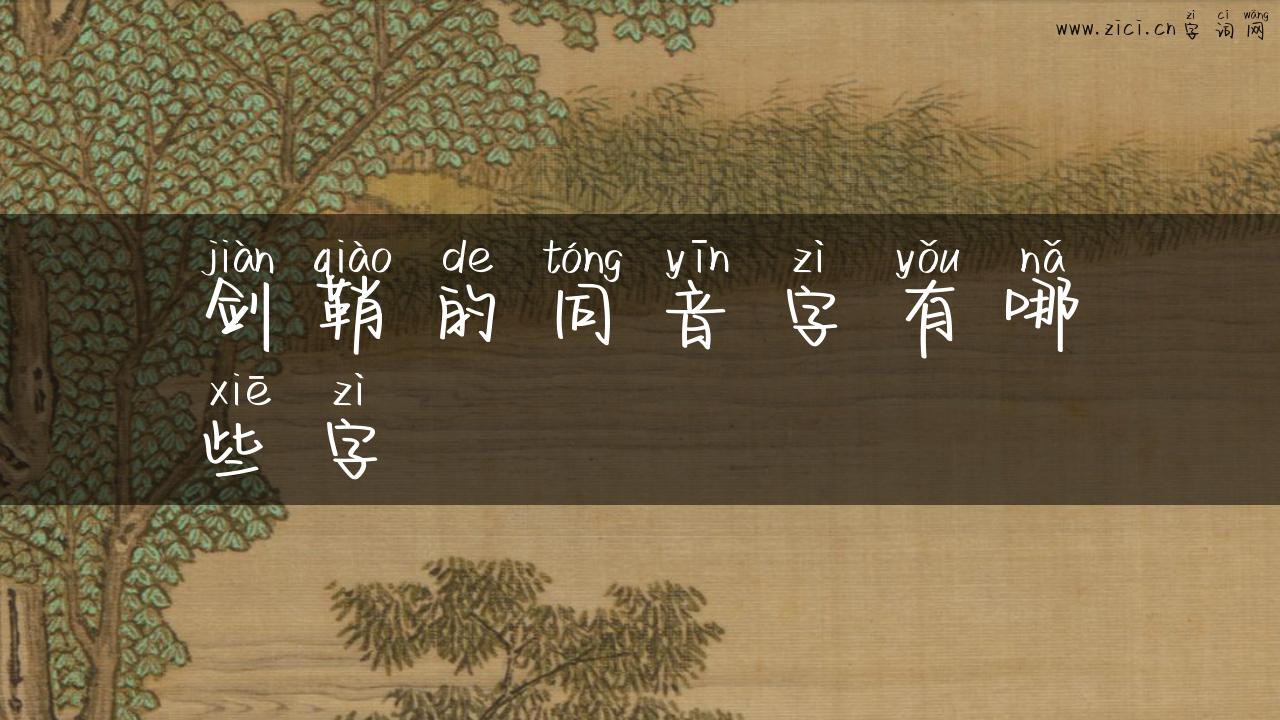 zì cí wǎng
www.zici.cn字词网
jiàn qiào de tóng yīn zì yǒu nǎ
剑鞘的同音字有哪
xiē zì
些字